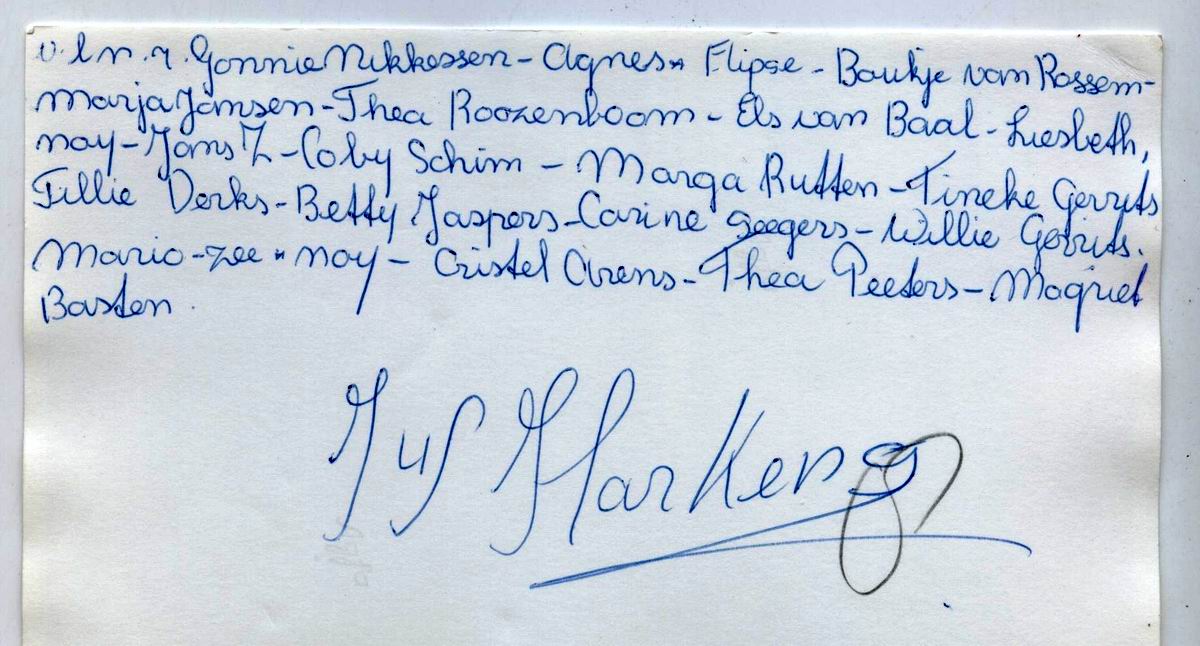 v.l n.r. Gonnie Nikkessen - Agnes Flipse - Baukje van Rossem -
Marja Jansen - Thea Roozenboom - Els van Baal - Liesbeth,
noy - Jans Z - Coby Schim - Marga Rutten - Tineke Gerrits
Tillie Derks - Betty Jaspers - Carine Seegers - Willie Gerrits.
Mario - zee " noy - Cristel Arens - Thea Peeters - Magriet
Basten.
Juf Harkens